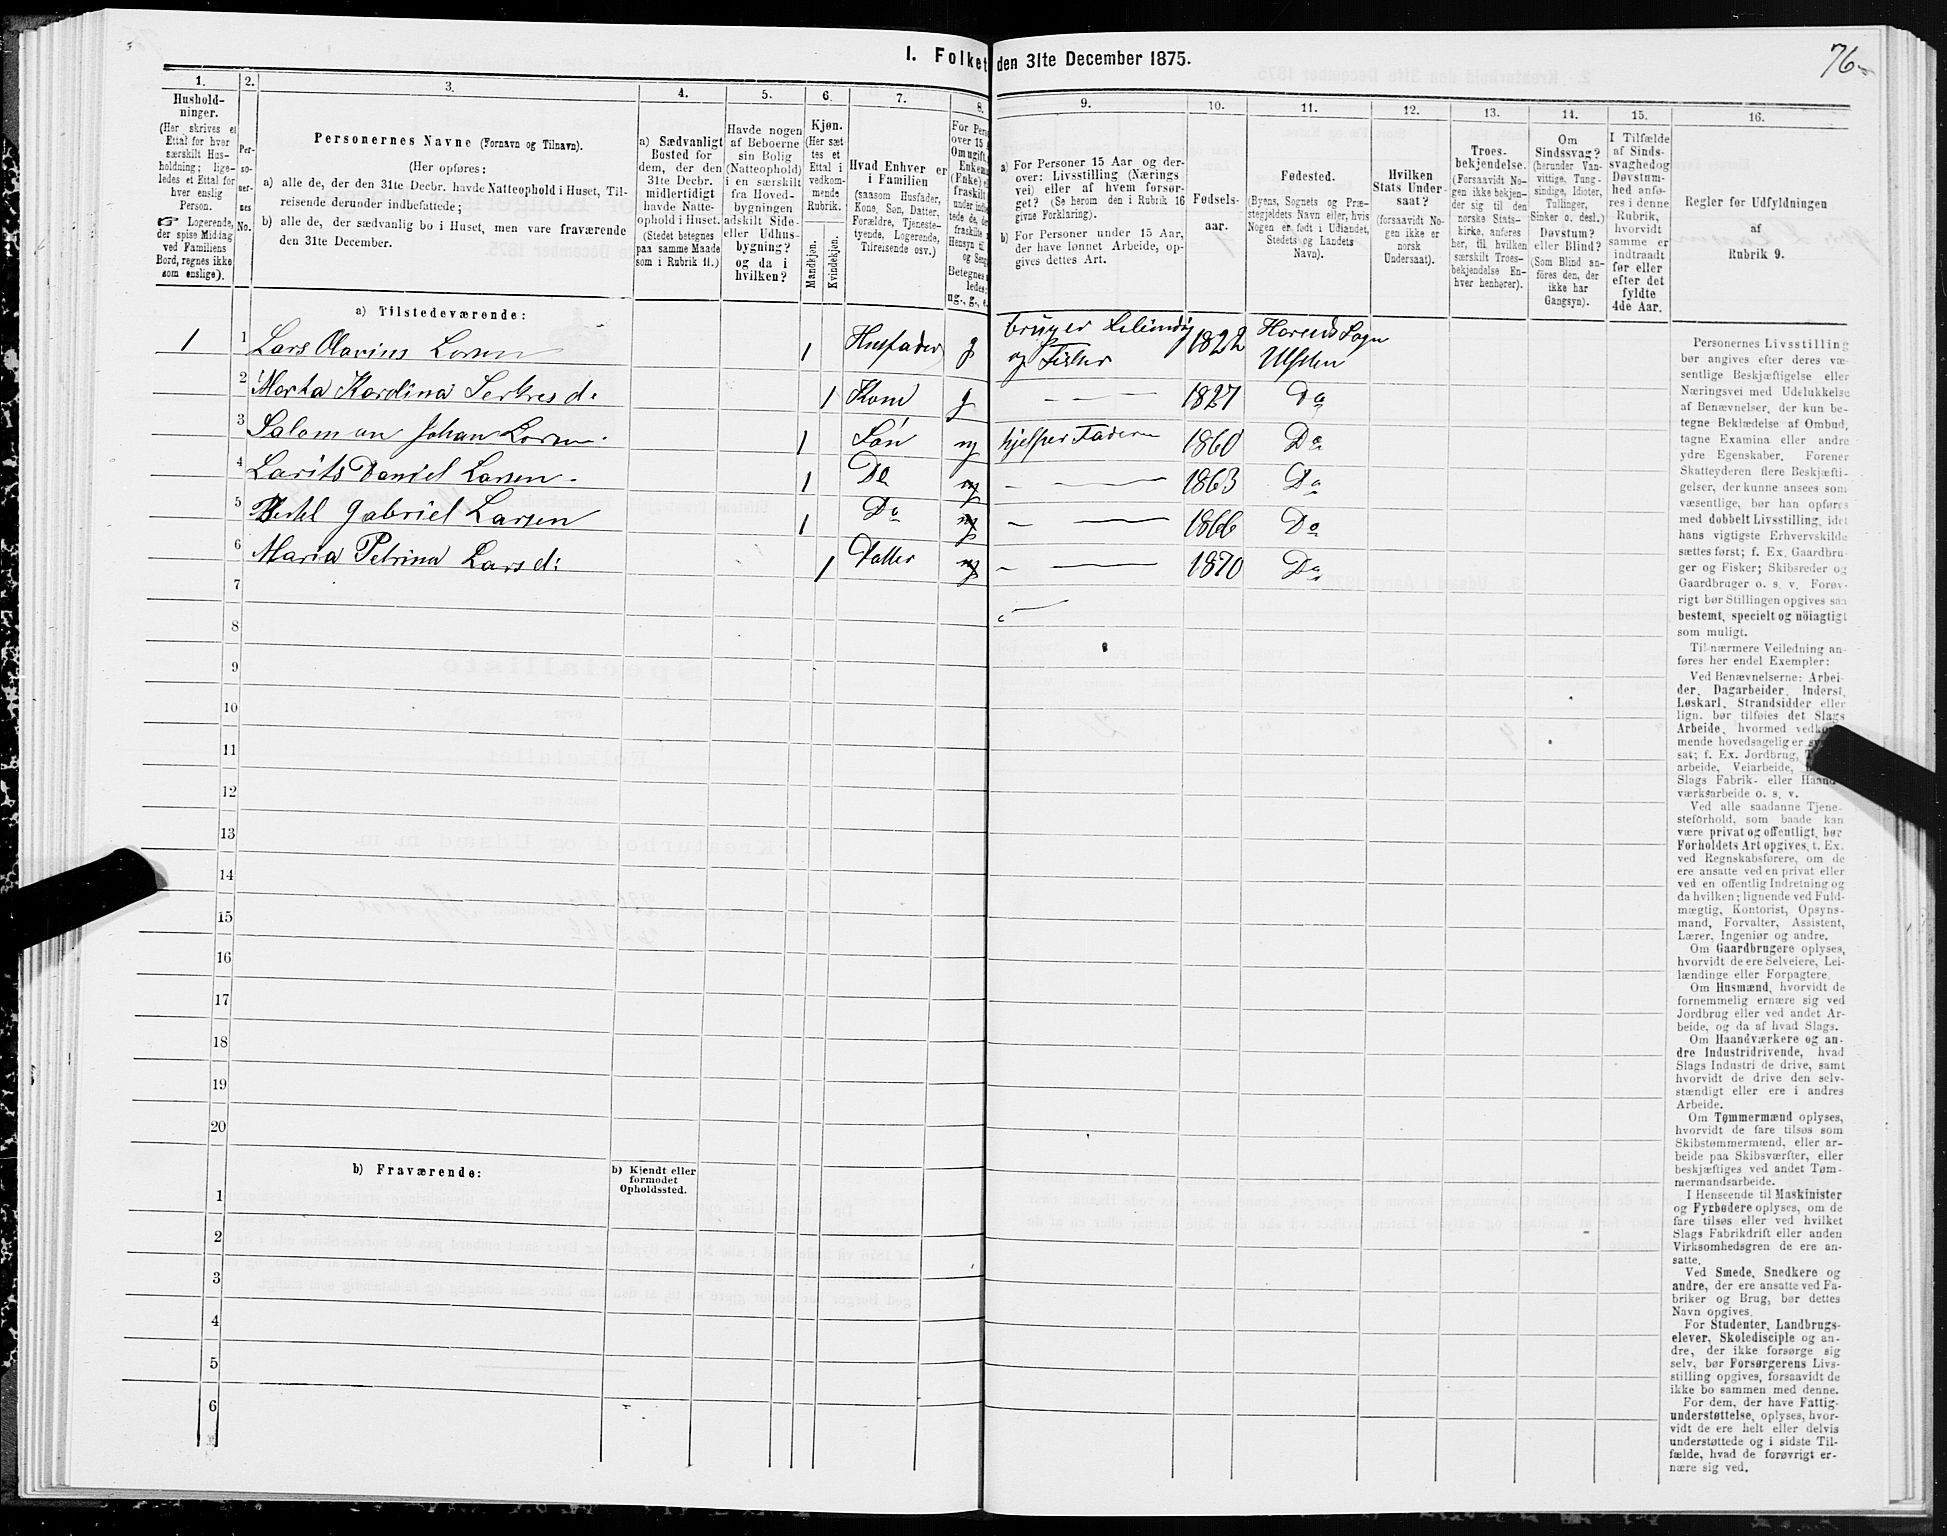 76
I. Folket den 31te December 1875.
1. 2. 3. 4. 5. 6. 7. 8. 9. 10. 11. 12. 13. 14. 15. 16.
Hushold-
ninger.
(Her skrives et
Ettal for hver
særskilt Hus-
holdning; lige-
ledes et Ettal for
hver enslig
Person.
☞ Logerende,
der spise Middag
ved Familiens
Bord, regnes ikke
som enslige).
Per-
soner-
nes
No.
Personernes Navne (Fornavn og Tilnavn).
(Her opføres:
a) alle de, der den 31te Decbr. havde Natteophold i Huset, Til-
reisende derunder indbefattede;
b) alle de, der sædvanlig bo i Huset, men vare fraværende
den 31te December.
a) Sædvanligt
Bosted for
dem, der den
31te Decbr.
midlertidigt
havde Natte-
ophold i Huset.
(Stedet betegnes
paa samme Maade
som i Rubrik 11.)
Havde nogen
af Beboerne
sin Bolig
(Natteophold)
i en særskilt
fra Hoved-
bygningen
adskilt Side-
eller Udhus-
bygning?
og da i
hvilken?
Kjøn.
(Her sæt
tes et
Ettal i
vedkom-
mende
Rubrik.
Mandkjøn.
Kvindekjøn.
Hvad Enhver er
i Familien
(saasom Husfader,
Kone, Søn, Datter,
Forældre, Tjeneste-
tyende, Logerende,
Tilreisende osv.)
For Pers
over 15 A
Om ugift,
Enkema
(Enke) e
fraskilt
Betegnes
ledes:
ug., g., e.
a) For Personer 15 Aar og der-
over: Livsstilling (Nærings
vei) eller af hvem forsør-
get? (Se herom den i Rubrik 16
givne Forklaring).
b) For Personer under 15 Aar,
der have lønnet Arbeide, op-
gives dettes Art.
Fødsels-
aar.
Fødested.
(Byens, Sognets og Præ-
stegjeldets Navn eller, hvis
Nogen er født i Udlandet,
Stedets og Landets
Navn).
Hvilken
Stats Under-
saat?
(forsaavidt No-
gen ikke er
norsk
Undersaat).
Troes-
bekjendelse.
(Forsaavidt No-
gen ikke bekjen-
der sig til den
norske Stats-
kirke, anføres
her, til hvilken
særskilt Troes-
bekjendelse En-
hver henhører).
Om
Sindssvag?
(herunder Van-
vittige, Tung-
sindige, Idioter,
Tullinger,
Sinker o. desl.)
Døvstum?
eller Blind?
(Som Blind an-
føres den, der
ikke har
Gangsyn).
I Tilfælde
af Sinds-
svaghed og
Døvstum-
hed anfø-
res i denne
Rubrik,
hvorvidt
samme er
indtraadt
før eller
efter det
fyldte
4de Aar.
Regler for Udfyldningen
af
Rubrik 9.
a) Tilstedeværende:
1 1 Lars Olarius Larsen 1 Husfader g bruger Leilending og Fisker 1822 Harreids Sogn Ulfsten
2 Marta Kardina Sertresd. 1 Kone g — — — 1827 Do
3 Salomon Johan Larsen. 1 Søn ug hjelper Faderen 1860 Do
4 Larits Daniel Larsen. 1 Do ug — — 1863 Do
5 Bertel Gabriel Larsen 1 Do ug — — 1866 Do
6 Maria Petrina Larsd: 1 Datter ug — — 1870 Do
7
8
9
10
11
12
13
14
15
16
17
18
19
20
b) Fraværende:
b) Kjendt eller
formodet
Opholdssted.
1
2
3
4
5
6
Personernes Livsstilling
bør angives efter deres væ-
sentlige Beskjæftigelse eller
Næringsvei med Udelukkelse
af Benævnelser, der kun be-
tegne Beklædelse af Ombud,
tagne Examina eller andre
ydre Egenskaber. Forener
Skatteyderen flere Beskjæfti-
gelser, der kunne ansees som
væsentlige, bør han opføres
med dobbelt Livsstilling, idet
hans vigtigste Erhvervskilde
sættes først; f. Ex. Gaardbru-
ger og Fisker; Skibsreder og
Gaardbruger o. s. v. Forøv-
rigt bør Stillingen opgives saa
bestemt, specielt og nöiagtigt
som muligt.
Til nærmere Veiledning an-
føres her endel Exempler:
Ved Benævnelserne: Arbei-
der, Dagarbeider, Inderst,
Løskarl, Strandsidder eller
lign. bør tilføies det Slags
Arbeide, hvormed vedkom-
mende hovedsagelig er
sat; f. Ex. Jordbrug,
arbeide, Veiarbeide,
Slags Fabrik- eller Haand-
værksarbeide o. s. v.
Ved alle saadanne Tjene-
steforhold, som baade kan
være privat og offentligt, bør
Forholdets Art opgives, t. Ex.
ved Regnskabsførere, om de
ere ansatte ved en privat eller
ved en offentlig Indretning og
da hvilken; lignende ved Fuld-
mægtig, Kontorist, Opsyns-
mand, Forvalter, Assistent,
Lærer, Ingeniør og andre.
Om Gaardbrugere oplyses,
hvorvidt de ere Selveiere, Lei-
lændinge eller Forpagtere.
Om Husmænd, hvorvidt de
fornemmelig ernære sig ved
Jordbrug eller ved andet Ar-
beide, og da af hvad Slags.
Om Haandværkere og an-
dre Industridrivende, hvad
Slags Industri de drive, samt
hvorvidt de drive den selv-
stændigt eller ere i andres
Arbeide.
Om Tømmermænd oplyses,
hvorvidt de fare tilsøs som
Skibstømmermænd, eller ar-
beide paa Skibsværfter, eller
beskjæftiges ved andet Tøm-
mermandsarbeide.
I Henseende til Maskinister
og Fyrbødere oplyses, om de
fare tilsøs eller ved hvilket
Slags Fabrikdrift eller anden
Virksomhedsgren de ere an-
satte.
Ved Smede, Snedkere og
andre, der ere ansatte ved Fa-
briker og Brug, bør dettes
Navn opgives.
For Studenter, Landbrugs-
elever, Skoledisciple og an-
dre, der ikke forsørge sig
selv, bør Forsørgerens Livs-
stilling opgives, forsaavidt de
ikke bo sammen med denne.
For dem, der have Fattig-
understøttelse, oplyses, hvor-
vidt de ere helt eller delvis
understøttede og i sidste Til-
fælde, hvad de forøvrigt er-
nære sig ved.